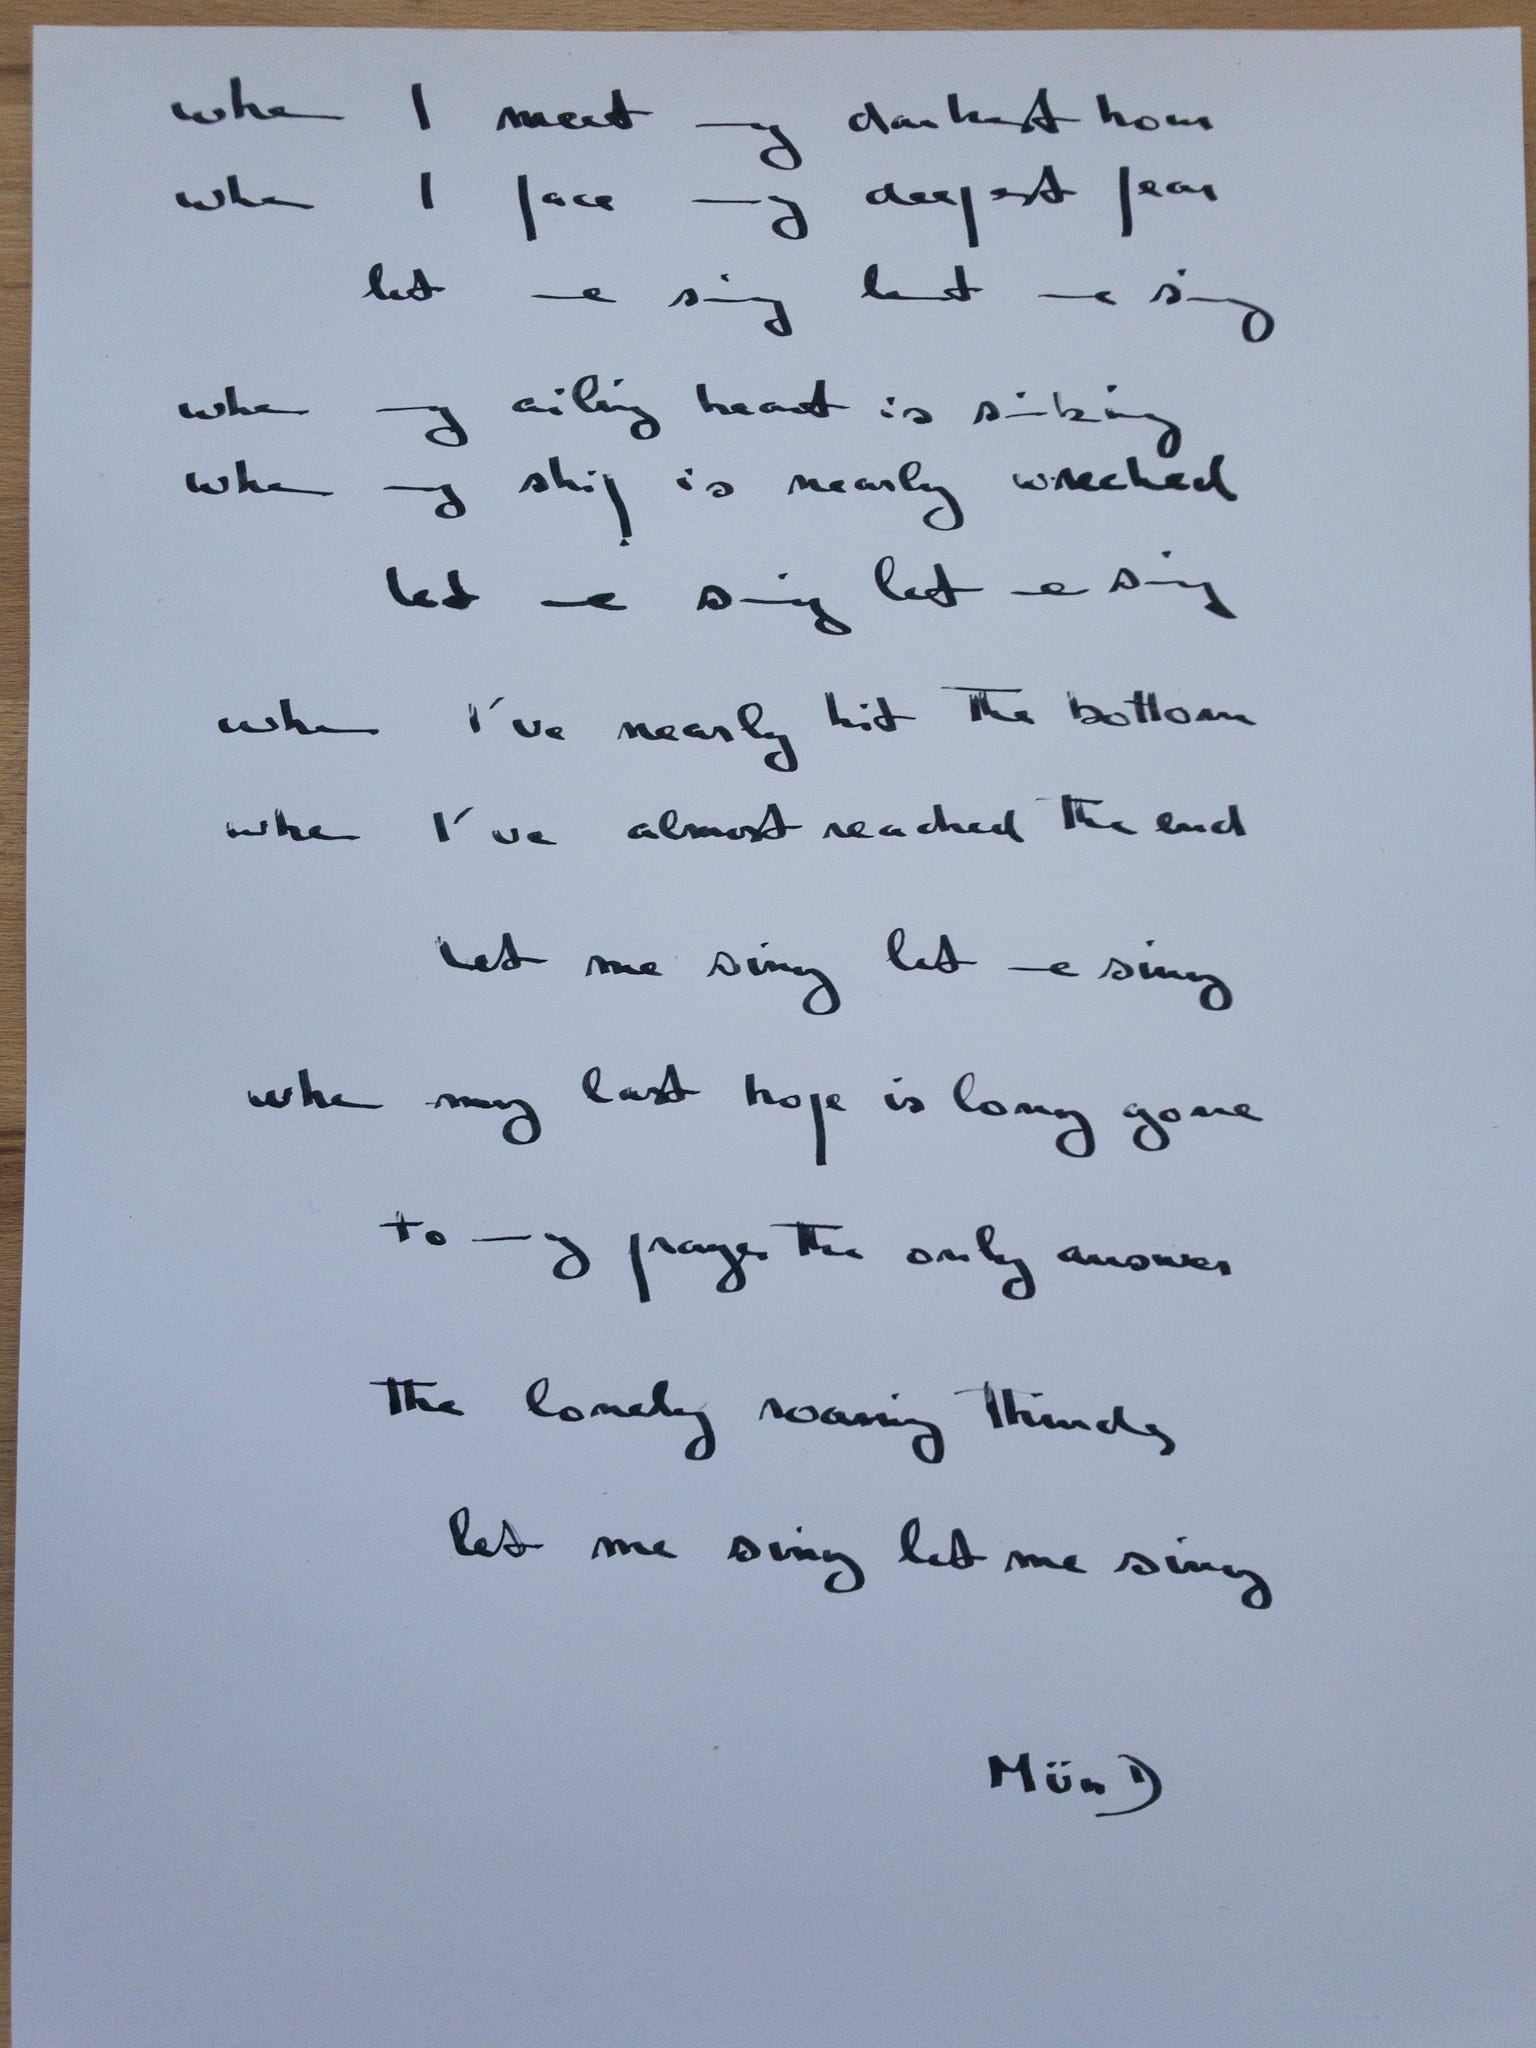 when I meet my darkest hour
when I face my deepest fear
let me sing let me sing
when my ailing heart is sinking
when my ship is nearly wrecked
let me sing let me sing
when I've nearly hit the bottom
when I've almost reached the end
let me sing let me sing
when my last hope is long gone
to my prayer the only answer
the lonely roaring
let me sing let me sing